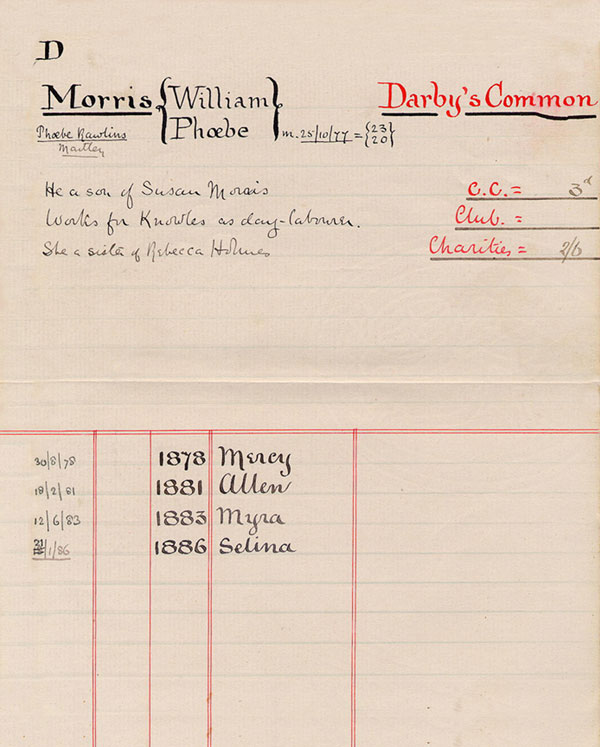 D
Morris { William } Darby's Common
Phoebe Rawlins { Phœbe } m. 25/10/77 = { 23
Martley 20 }
He a son of Susan Morris C.C. = 3rd
Works for Knowles as day-labourer. Club. =
She a sister of Rebecca Holmes Charities = 2/6
30/8/78 1878 Mercy
18/2/81 1881 Allen
12/6/83 1883 Myra
/1/86 1886 Selina